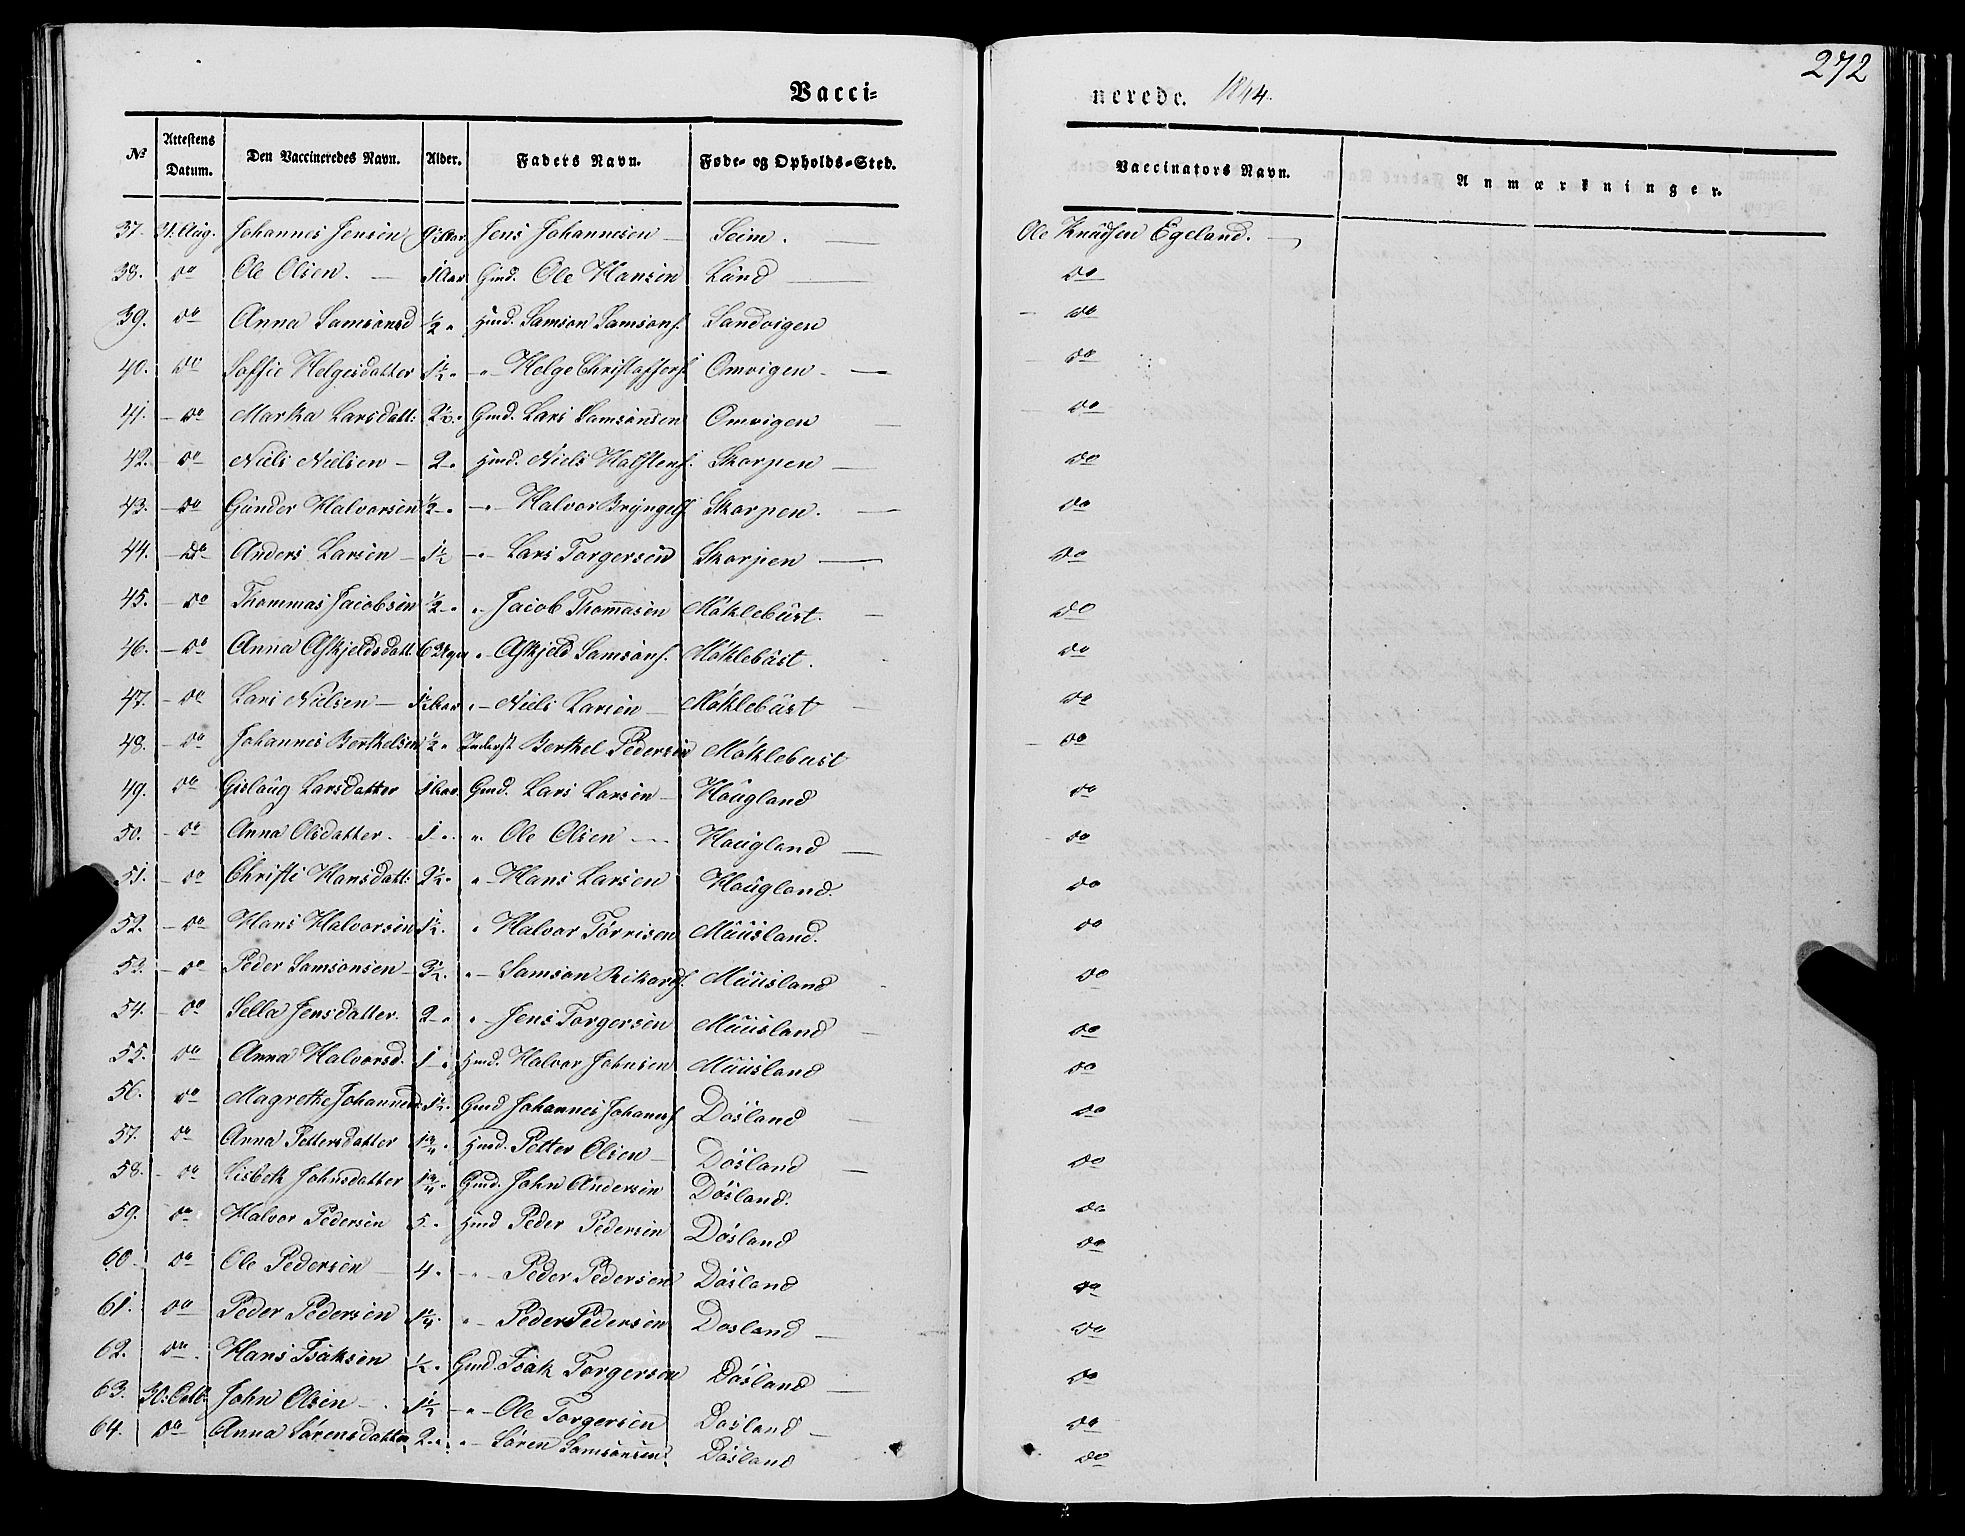 272
Vacci= nerede. 1844.
No Attestens Datum. Den Vaccineredes Navn. Alder. Faders Navn. Føde- og Opholds-Sted. Vaccinators Navn. Anmærkninger.
37. 31. Aug. Johannes Jensen Aar Jens Johannesen Seim. Ole Knudsen Egeland.
38. do Ole Olsen. 1 Aar Gmd. Ole Hansen Lünd do
39. do Anna Samsonsd ½ " Hmd. Samson Samsons. Sandvigen do
40. do Soffie Helgesdatter 1½ " " Helge Christoffers. Omvigen do
41. do Martha Larsdatt: 2½ " Gmd. Lars Samsonsen Omvigen do
42. do Niels Nielsen 2 " Hmd. Niels Halstens. Skorpen do
43. do Gunder Halvorsen ½ " " Halvor Bryngels. Skorpen. do
44. do Anders Larsen 1½ " Lars Torgersen Skorpen do
45. do Thommas Jacobsen ½ " " Jacob Thommasen Møklebüst. do
46. do Anna Askjeldsdatt. 6 Uger " Askjeld Samsons. Møklebüst. do
47. do Lars Nielsen 1½ Aar " Niels Larsen Møklebüst do
48. do Johannes Berthelsen ½ " Inderst Berthel Pedersen Møklebust do
49. do Gislaug Larsdatter 1 Aar. Gmd. Lars Larsen Haügland do
50. do Anna Olsdatter. 1 " " Ole Olsen Haugland do
51. do Christi Hansdatt: 2½ " " Hans Larsen Haügland. do
52. do Hans Halvorsen 1½ " Halvor Tørrisen Müüsland. do
53. do Peder Samsonsen 3½ " Samson Rikards. Müüsland do
54. do Sella Jensdatter. 2 " " Jens Torgersen Müüsland do
55. do Anna Halvorsd. 1 " Hmd. Halvor Johnsen Müüsland do
56. do Magrethe Johannesd 1½ Gmd Johannes Johannes. Døsland do
57. do Anna Pettersdatter 1¾ " Hmd. Petter Olsen Døsland do
58. do Lisbeth Johnsdatter 1¾ " Gmd. John Andersen Døsland. do
59. do Halvor Pedersen 5 " Hmd Peder Pedersen Døsland do
60 do Ole Pedersen 4 " " Peder Pedersen Døsland do
61. do Peder Pedersen 1¼ " " Peder Pedersen Døsland do
62. do Hans Isaksen ½ " Gmd. Isak Torgersen Døsland do
63. 30: Octb. John Olsen 1½ " Ole Torgersen Døsland do
64. do Anna Sørensdatter 2 " " Søren Samsonsen Døsland do